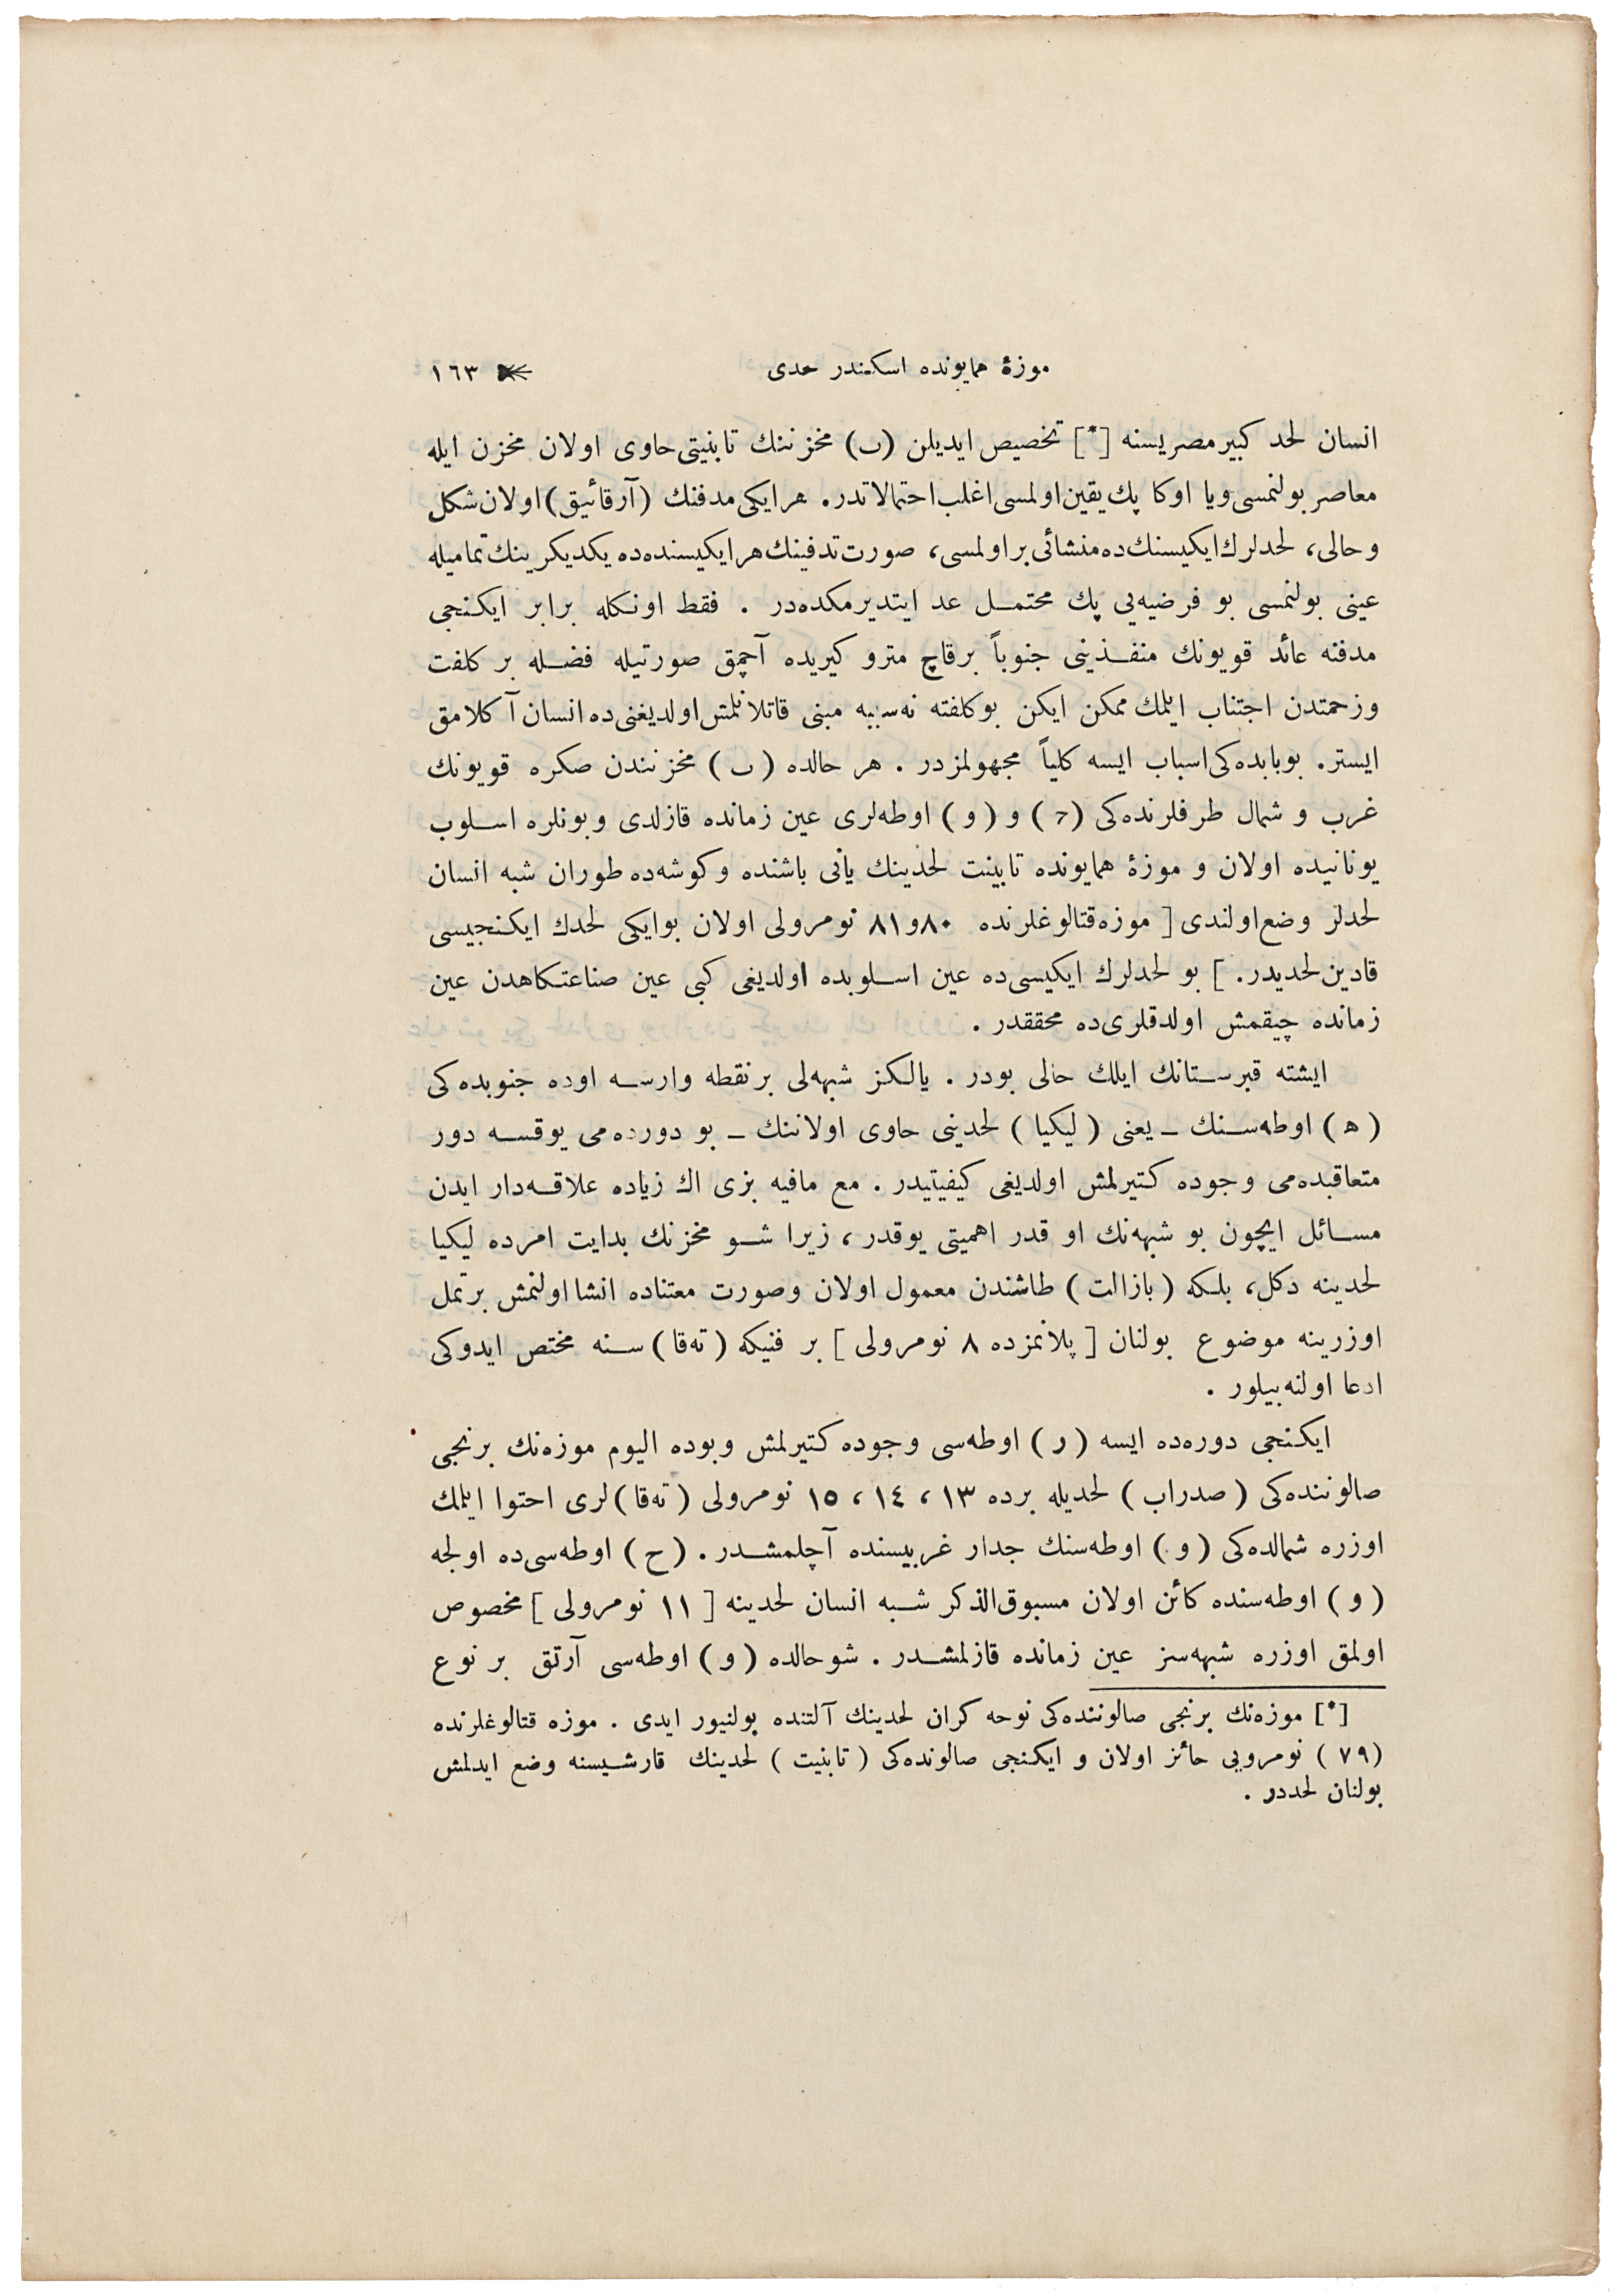 موزۀ همایونده اسكندر لحدی ١٦٣
انسان لحد كبیر مصریسنه [*] تخصیص ایدیلن (ب) مخزننك تابنیتی حاوی اولان مخزن ایله
معاصر بولنمسی ویا اوكا پك یقین اولمسی اغلب احتمالاتدر. هر ایكی مدفنك (آرقائیق) اولان شكل
وحالی، لحدلرك ایكیسنك ده منشائی بر اولمسی، صورت تدفینك هر ایكیسنده ده یكدیكرینك تمامیله
عینی بولنمسی بو فرضیه‌یی پك محتمل عد ایتدیرمكده‌در . فقط اونكله برابر ایكنجی
مدفنه عائد قویونك منفذینی جنوباً برقاچ مترو كیریده آچمق صورتیله فضله بر كلفت
وزحمتدن اجتناب ایلمك ممكن ایكن بوكلفته نه‌سببه مبنی قاتلانلمش اولدیغنی ده انسان آكلامق
ایستر. بوبابده‌كی اسباب ایسه كلیاً مجهولمزدر . هر حالده (ب) مخزنندن صكره قویونك
غرب و شمال طرفلرنده‌كی (ج) و (و) اوطه‌لری عین زمانده قازلدی وبونلره اسلوب
یونانیده اولان و موزۀ همایونده تابینت لحدینك یانی باشنده وكوشه‌ده طوران شبه انسان
لحدلر وضع اولندی [ موزه قتالوغلرنده ٨٠و٨١ نومرولی اولان بوایكی لحدك ایكنجیسی
قادین لحدیدر. ] بو لحدلرك ایكیسی ده عین اسلوبده اولدیغی كبی عین صناعتكاهدن عین
زمانده چیقمش اولدقلری ده محققدر .
ایشته قبرستانك ایلك حالی بودر . یالكز شبهه‌لی بر نقطه وارسه اوده جنوبده‌كی
(ه) اوطه‌سنك ـ یعنی (لیكیا) لحدینی حاوی اولاننك ـ بو دورده‌می یوقسه دور
متعاقبده‌می وجوده كتیرلمش اولدیغی كیفیتیدر . مع مافیه بزی اك زیاده علاقه‌دار ایدن
مسائل ایچون بو شبهه‌نك او قدر اهمیتی یوقدر ، زیرا شو مخزنك بدایت امرده لیكیا
لحدینه دكل، بلكه (بازالت) طاشندن معمول اولان وصورت معتناده انشا اولنمش بر تمل
اوزرینه موضوع بولنان [ پلانمزده ٨ نومرولی ] بر فنیكه (ته‌قا) سنه مختص ایدوكی
ادعا اولنه‌بیلور .
ایكنجی دوره‌ده ایسه (ر) اوطه‌سی وجوده كتیرلمش وبوده الیوم موزه‌نك برنجی
صالوننده‌كی (صدراب) لحدیله برده ١٣ ، ١٤ ، ١٥ نومرولی (ته‌قا) لری احتوا ایلمك
اوزره شمالده‌كی (و) اوطه‌سنك جدار غربیسنده آچلمشدر . (ح) اوطه‌سی ده اولجه
(و) اوطه‌سنده كائن اولان مسبوق‌الذكر شبه انسان لحدینه [ ١١ نومرولی ] مخصوص
اولمق اوزره شبهه‌سز عین زمانده قازلمشدر . شو حالده (و) اوطه‌سی آرتق بر نوع
[*] موزه‌نك برنجی صالوننده‌كی نوحه كران لحدینك آلتنده بولنیور ایدی . موزه قتالوغلرنده
(٧٩) نومرویی حائز اولان و ایكنجی صالونده‌كی (تابنیت) لحدینك قارشیسنه وضع ایدلمش
بولنان لحددر .